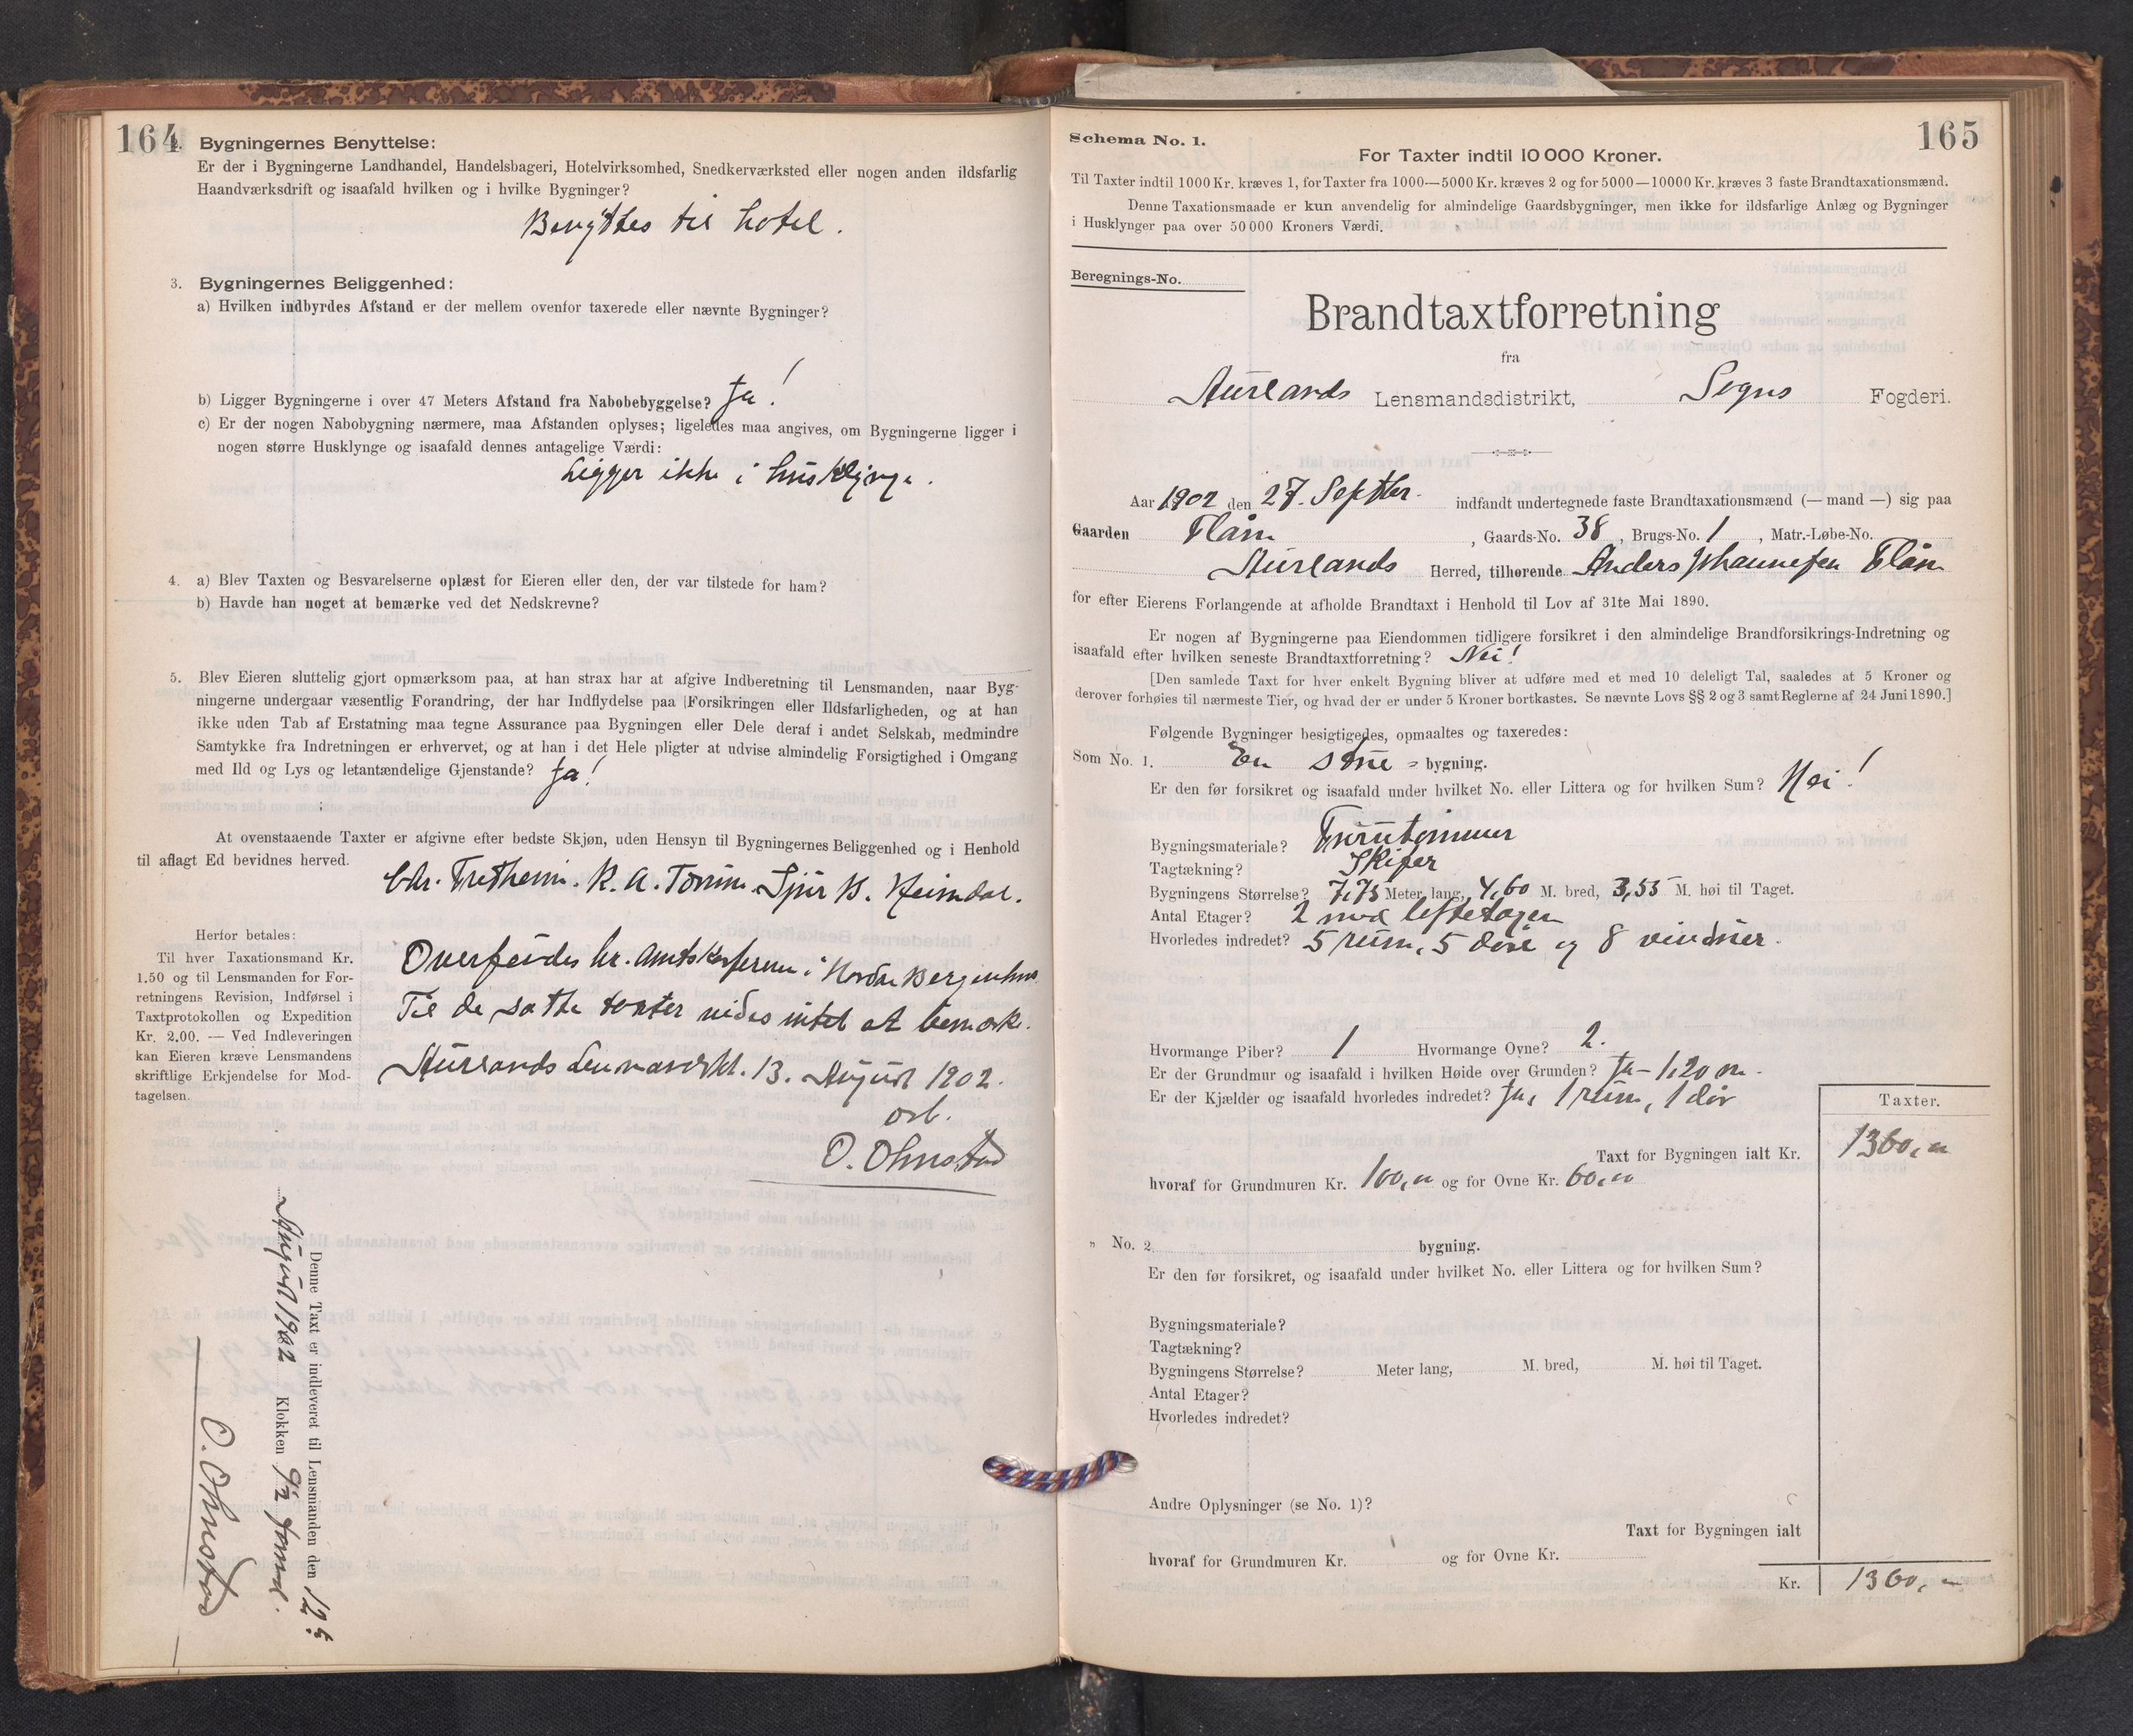 164
Bygningernes Benyttelse:
Er der i Bygningerne Landhandel, Handelsbageri, Hotelvirksomhed, Snedkerværksted eller nogen anden ildsfarlig
Haandværksdrift og isaafald hvilken og i hvilke Bygninger?
Benyttes til hotel.
3. Bygningernes Beliggenhed:
a) Hvilken indbyrdes Afstand er der mellem ovenfor taxerede eller nævnte Bygninger?
b) Ligger Bygningerne i over 47 Meters Afstand fra Nabobebyggelse? Ja!
c) Er der nogen Nabobygning nærmere, maa Afstanden oplyses; ligeledes maa angives, om Bygningerne ligger i
nogen større Husklynge og isaafald dennes antagelige Værdi:
Ligger ikke i husklynge.
4. a) Blev Taxten og Besvarelserne oplæst for Eieren eller den, der var tilstede for ham?
b) Havde han noget at bemærke ved det Nedskrevne?
5. Blev Eieren sluttelig gjort opmærksom paa, at han strax har at afgive Indberetning til Lensmanden, naar Byg-
ningerne undergaar væsentlig Forandring, der har Indflydelse paa Forsikringen eller Ildsfarligheden, og at han
ikke uden Tab af Erstatning maa tegne Assurance paa Bygningen eller Dele deraf i andet Selskab, medmindre
Samtykke fra Indretningen er erhvervet, og at han i det Hele pligter at udvise almindelig Forsigtighed i Omgang
med Ild og Lys og letantændelige Gjenstande? Ja!
At ovenstaaende Taxter er afgivne efter bedste Skjøn, uden Hensyn til Bygningernes Beliggenhed og i Henhold
til aflagt Ed bevidnes herved.
Chr. Fretheim. K. A. Tonnn. Sjur K. Heimdal.
Herfor betales:
Til hver Taxationsmand Kr.
1.50 og til Lensmanden for For-
retningens Revision, Indførsel i
Taxtprotokollen og Expedition
Kr. 2.00. — Ved Indleveringen
kan Eieren kræve Lensmandens
skriftlige Erkjendelse for Mod-
tagelsen.
Oversendes hr. Amtskasserem i Nordre Bergenhus
Til de satte taxter vides intet at bemærke.
Aurlands 13. August 1902.
O. Ohnstad
Denne Taxt er indleveret til Lensmanden den 12te
August 1902 Klokken 9½ form.
O. Ohnstad
165
Schema No. 1.
For Taxter indtil 10 000 Kroner.
Til Taxter indtil 1000 Kr. kræves 1, for Taxter fra 1000—5000 Kr. kræves 2 og for 5000—10000 Kr. kræves 3 faste Brandtaxationsmænd.
Denne Taxationsmaade er kun anvendelig for almindelige Gaardsbygninger, men ikke for ildsfarlige Anlæg og Bygninger
i Husklynger paa over 50 000 Kroners Værdi.
Beregnings-No.
Brandtaxtforretning
fra
Aurlands Lensmandsdistrikt, Sogns Fogderi.
Aar 1902 den 27. Septbr. indfandt undertegnede faste Brandtaxationsmænd (— mand —) sig paa
Gaarden Flåm, Gaards-No. 38, Brugs-No. 1, Matr.-Løbe-No.
Aurlands Herred, tilhørende Anders Johannesen Flåm
for efter Eierens Forlangende at afholde Brandtaxt i Henhold til Lov af 31te Mai 1890.
Er nogen af Bygningerne paa Eiendommen tidligere forsikret i den almindelige Brandforsikrings-Indretning og
isaafald efter hvilken seneste Brandtaxtforretning? Nei!
[Den samlede Taxt for hver enkelt Bygning bliver at udføre med et med 10 deleligt Tal, saaledes at 5 Kroner og
derover forhøies til nærmeste Tier, og hvad der er under 5 Kroner bortkastes. Se nævnte Lovs §§ 2 og 3 samt Reglerne af 24 Juni 1890.]
Følgende Bygninger besigtigedes, opmaaltes og taxeredes:
Som No. 1. En stue - bygning.
Er den før forsikret og isaafald under hvilket No. eller Littera og for hvilken Sum? Nei!
Bygningsmateriale? Furutømmer
Tagtækning? Skifer
Bygningens Størrelse? 7,75 Meter lang, 4,60 M. bred, 3,55 M. høi til Taget.
Antal Etager? 2 med loftetagen
Hvorledes indredet? 5 rum, 5 døre og 8 vinduer.
Hvormange Piber? 1 Hvormange Ovne? 2.
Er der Grundmur og isaafald i hvilken Høide over Grunden? Ja - 1,20 m.
Er der Kjælder og isaafald hvorledes indredet? Ja, 1 rum, 1 dør
Taxter.
Taxt for Bygningen ialt Kr. 1360,00
hvoraf for Grundmuren Kr. 100,00 og for Ovne Kr. 60,00
„ No. 2 bygning.
Er den før forsikret, og isaafald under hvilket No. eller Littera og for hvilken Sum?
Bygningsmateriale?
Tagtækning?
Bygningens Størrelse? Meter lang, M. bred, M. høi til Taget.
Antal Etager?
Hvorledes indredet?
Andre Oplysninger (se No. 1)?
Taxt for Bygningen ialt
hvoraf for Grundmuren Kr. og for Ovne Kr.
Kr. 1360,-